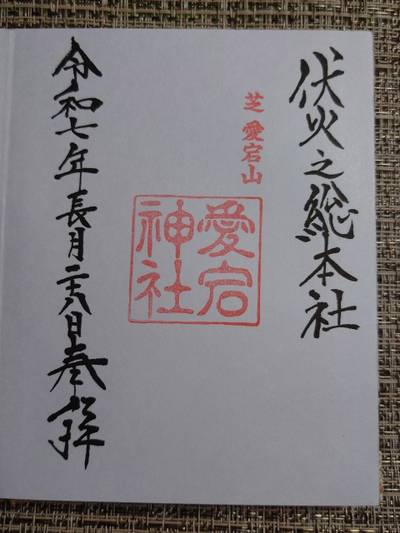 伏火之総本社
芝愛宕山
愛宕
神社
令和七年長月二十八日奉拝